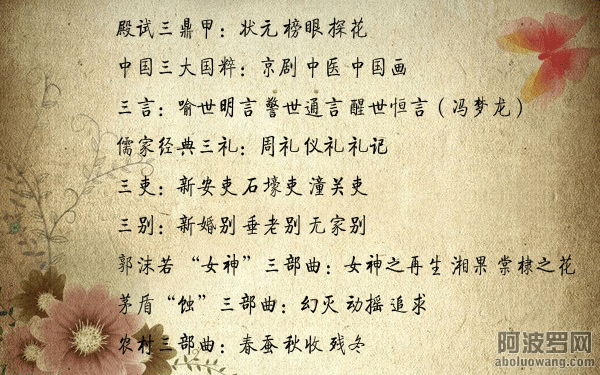 殿试三鼎甲：状元 榜眼 探花
中国三大国粹：京剧 中医 中国画
三言：喻世明言 警世通言 醒世恒言（冯梦龙）
儒家经典三礼：周礼 仪礼 礼记
三吏：新安吏 石壕吏 潼关吏
三别：新婚别 垂老别 无家别
郭沫若“女神”三部曲：女神之再生 湘果 棠棣之花
茅盾“蚀”三部曲：幻灭 动摇 追求
农村三部曲：春蚕 秋收 残冬
阿波罗网
aboluowang.com